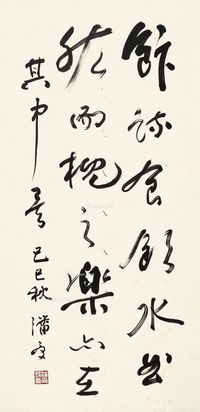 飯疏食飲水曲
肱而枕之樂亦在
其中矣 己巳秋 潘受